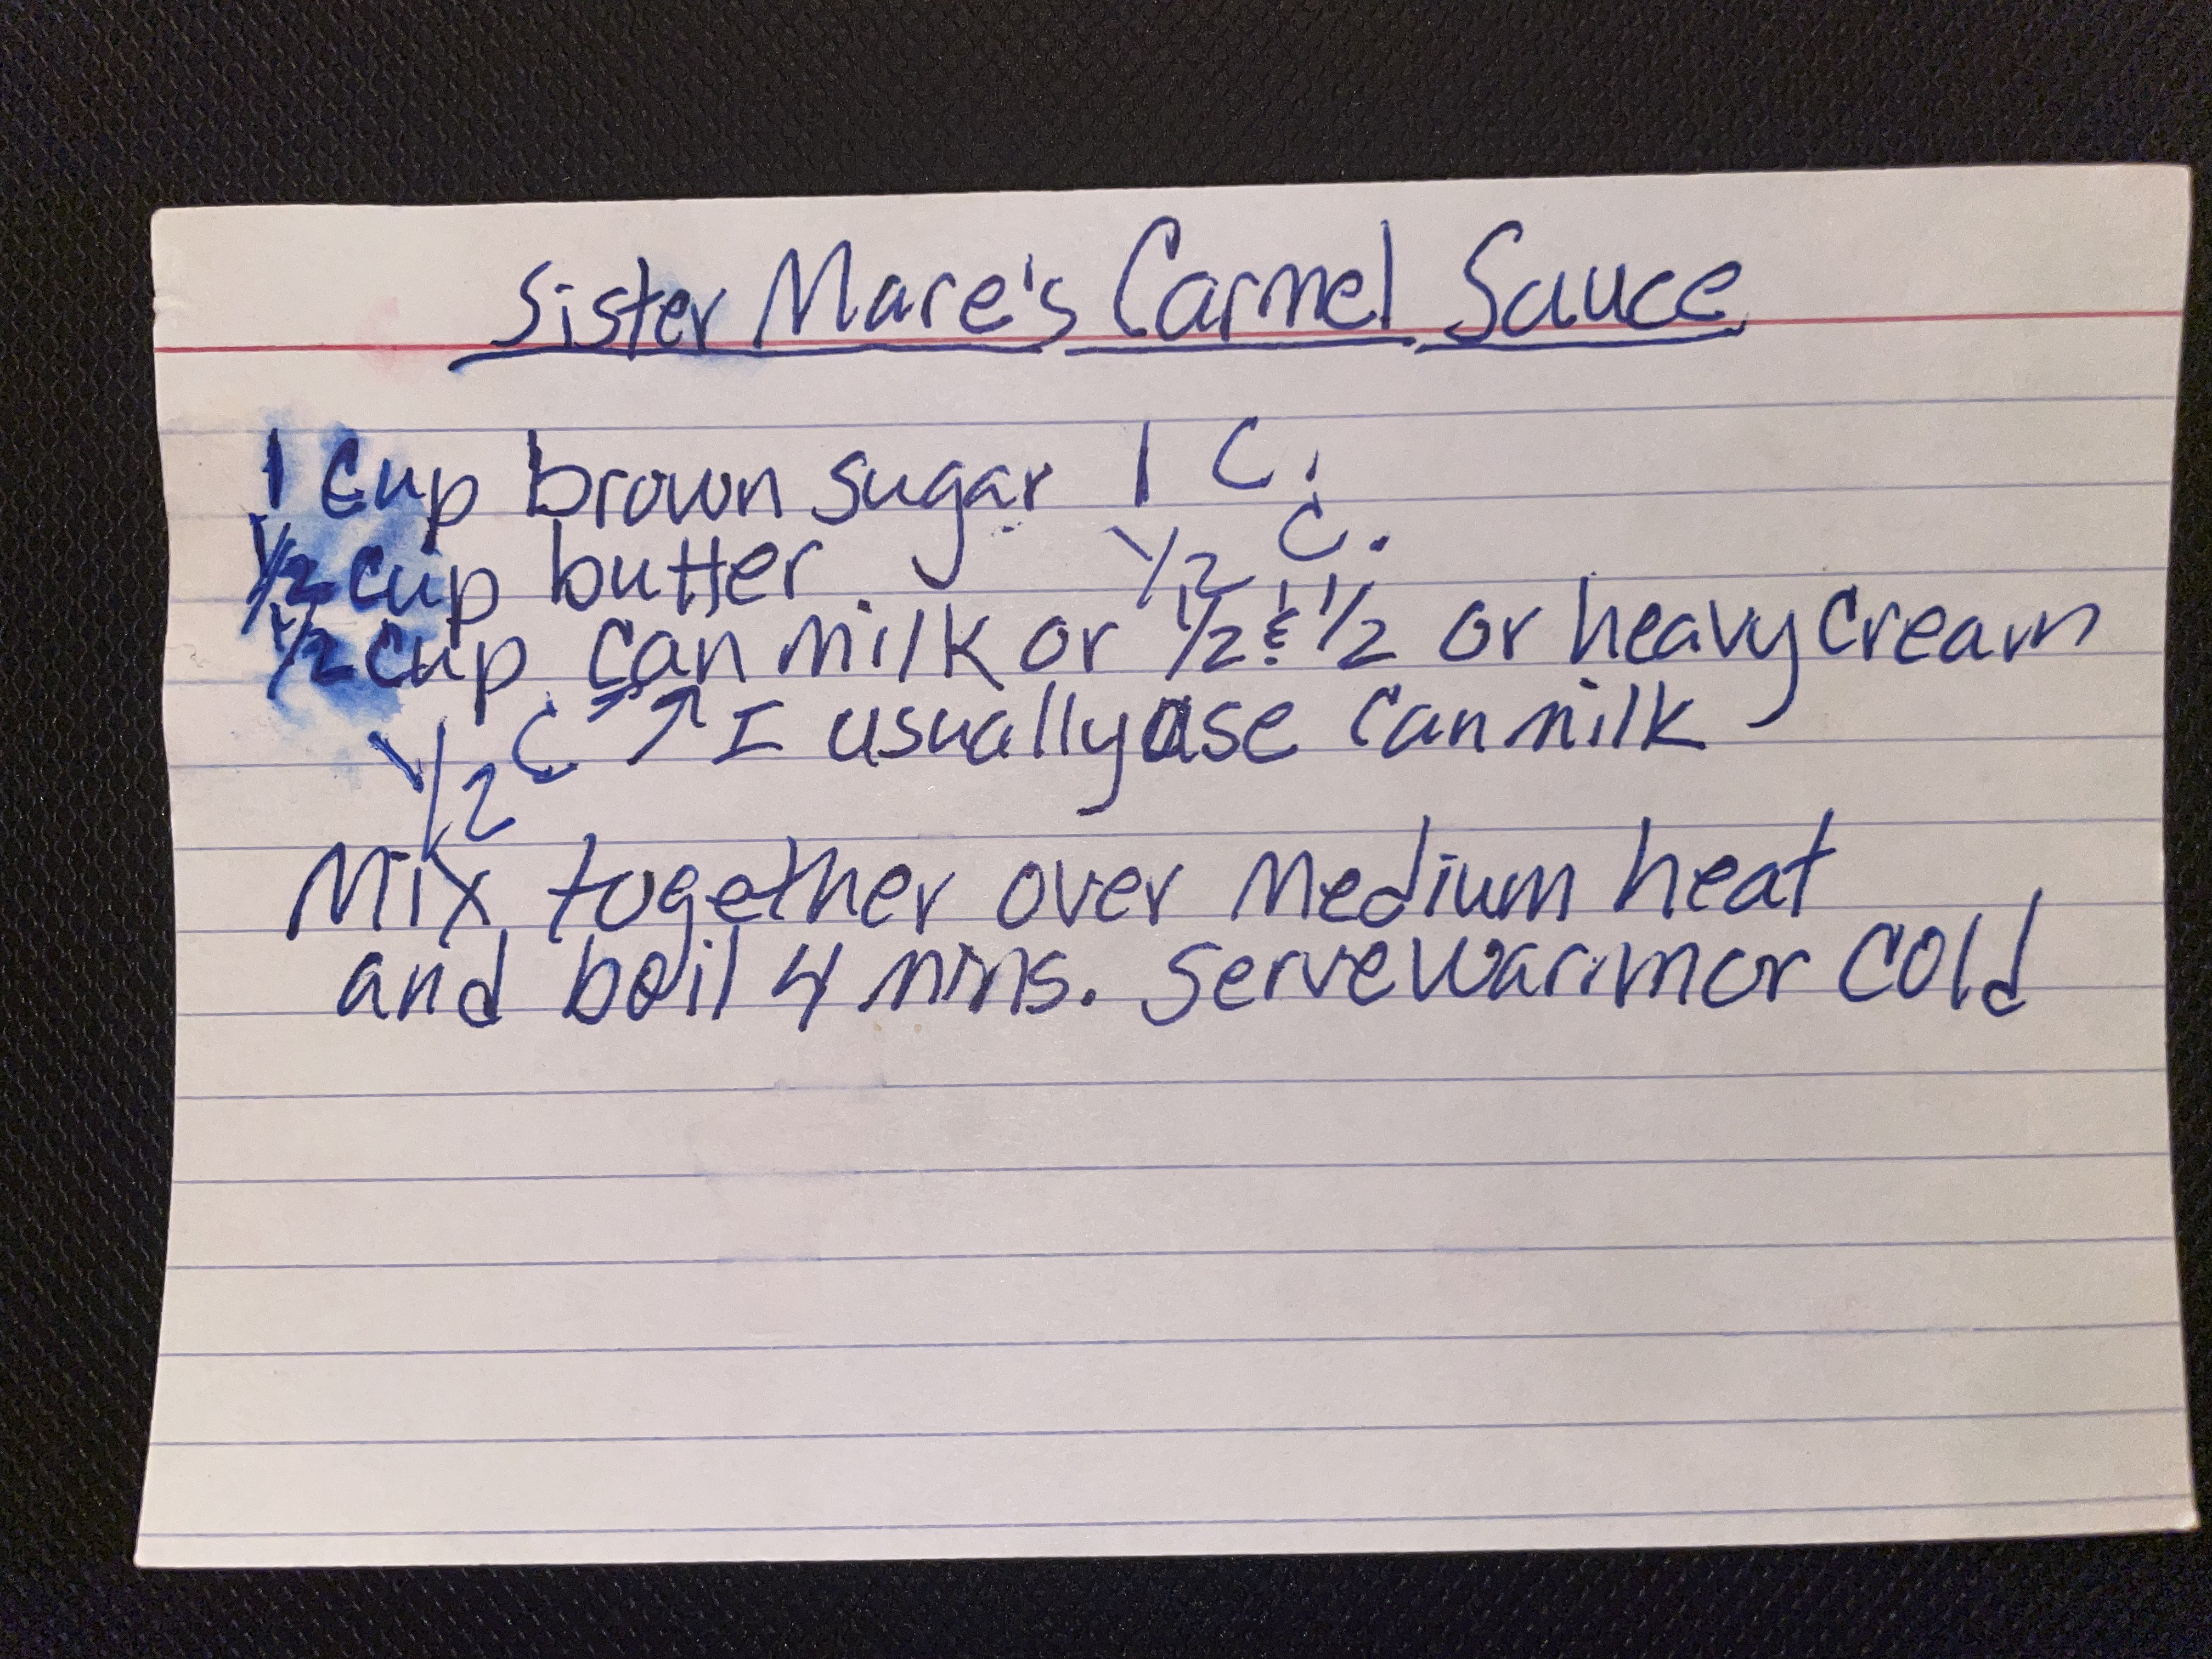 Sister Mare's Carmel Sauce
1 cup brown sugar 1 C.
1/2 cup butter 1/2 C.
1/2 cup can milk or 1/2 & 1/2 or heavy cream
1/2 C. I usually use can milk
Mix together over medium heat
and boil 4 mins. serve warm or cold